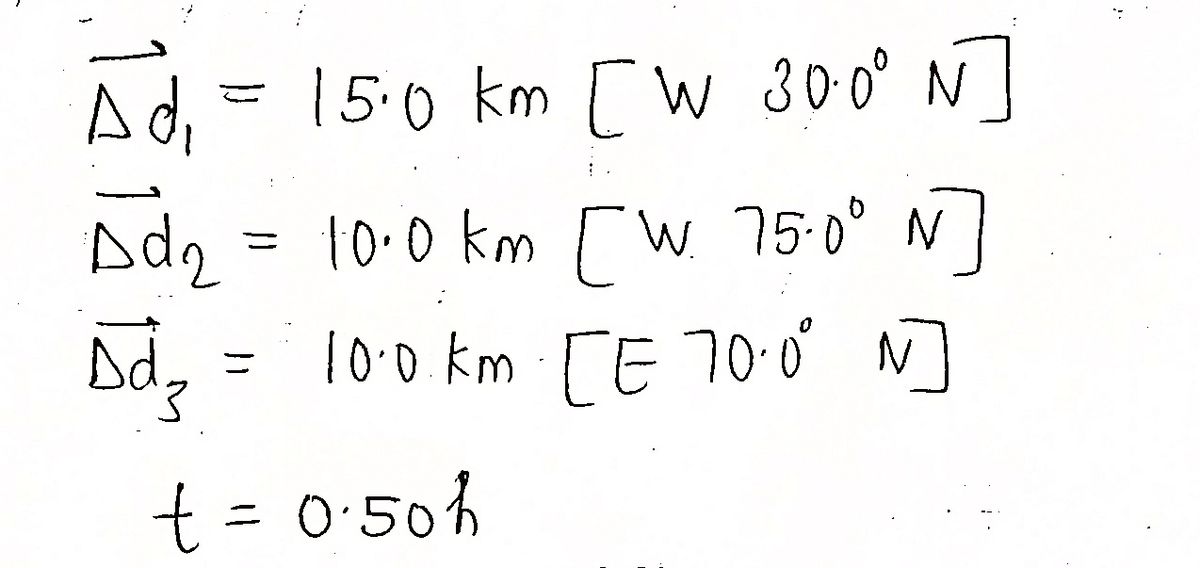 Δd⃗₁ = 15.0 km [W 30.0° N]
Δd⃗₂ = 10.0 km [W 75.0° N]
Δd⃗₃ = 10.0 km [E 70.0° N]
t = 0.50h